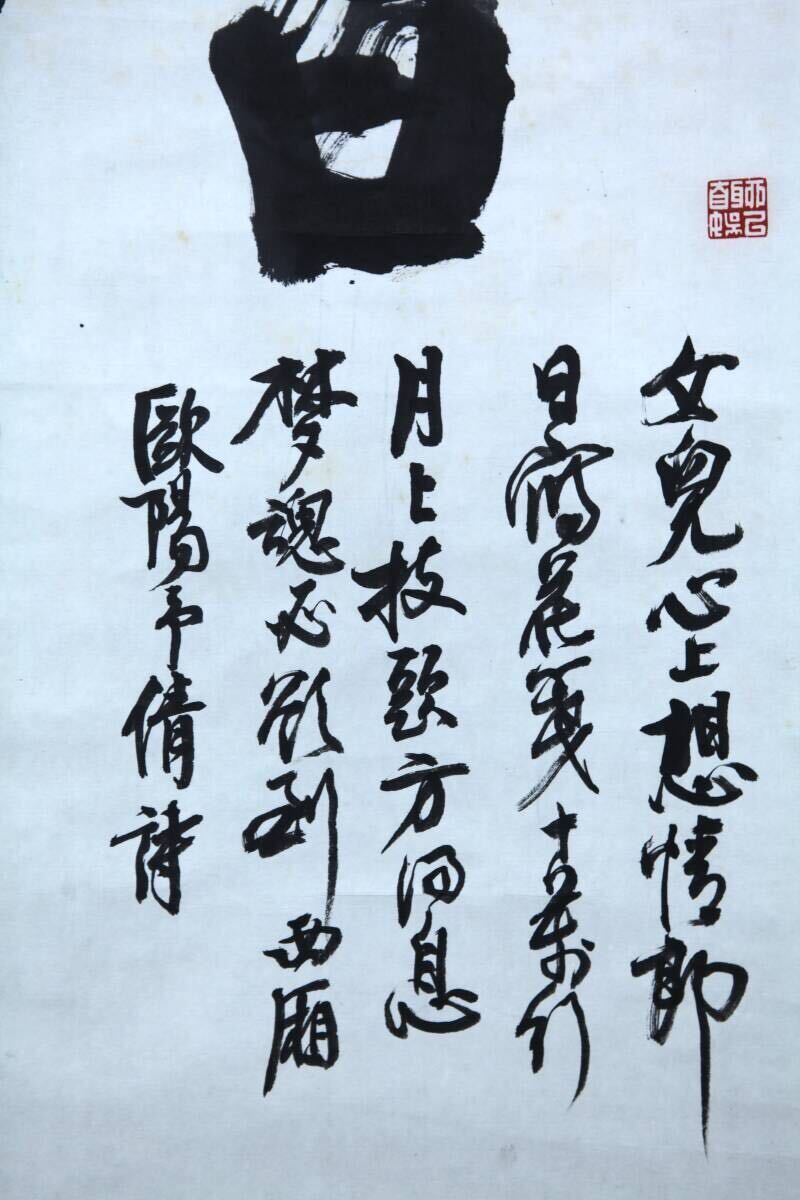 女兒心上想情郎
日寫花箋十萬行
月上枝頭方得息
梦魂必欲到西厢
歐陽予倩詩